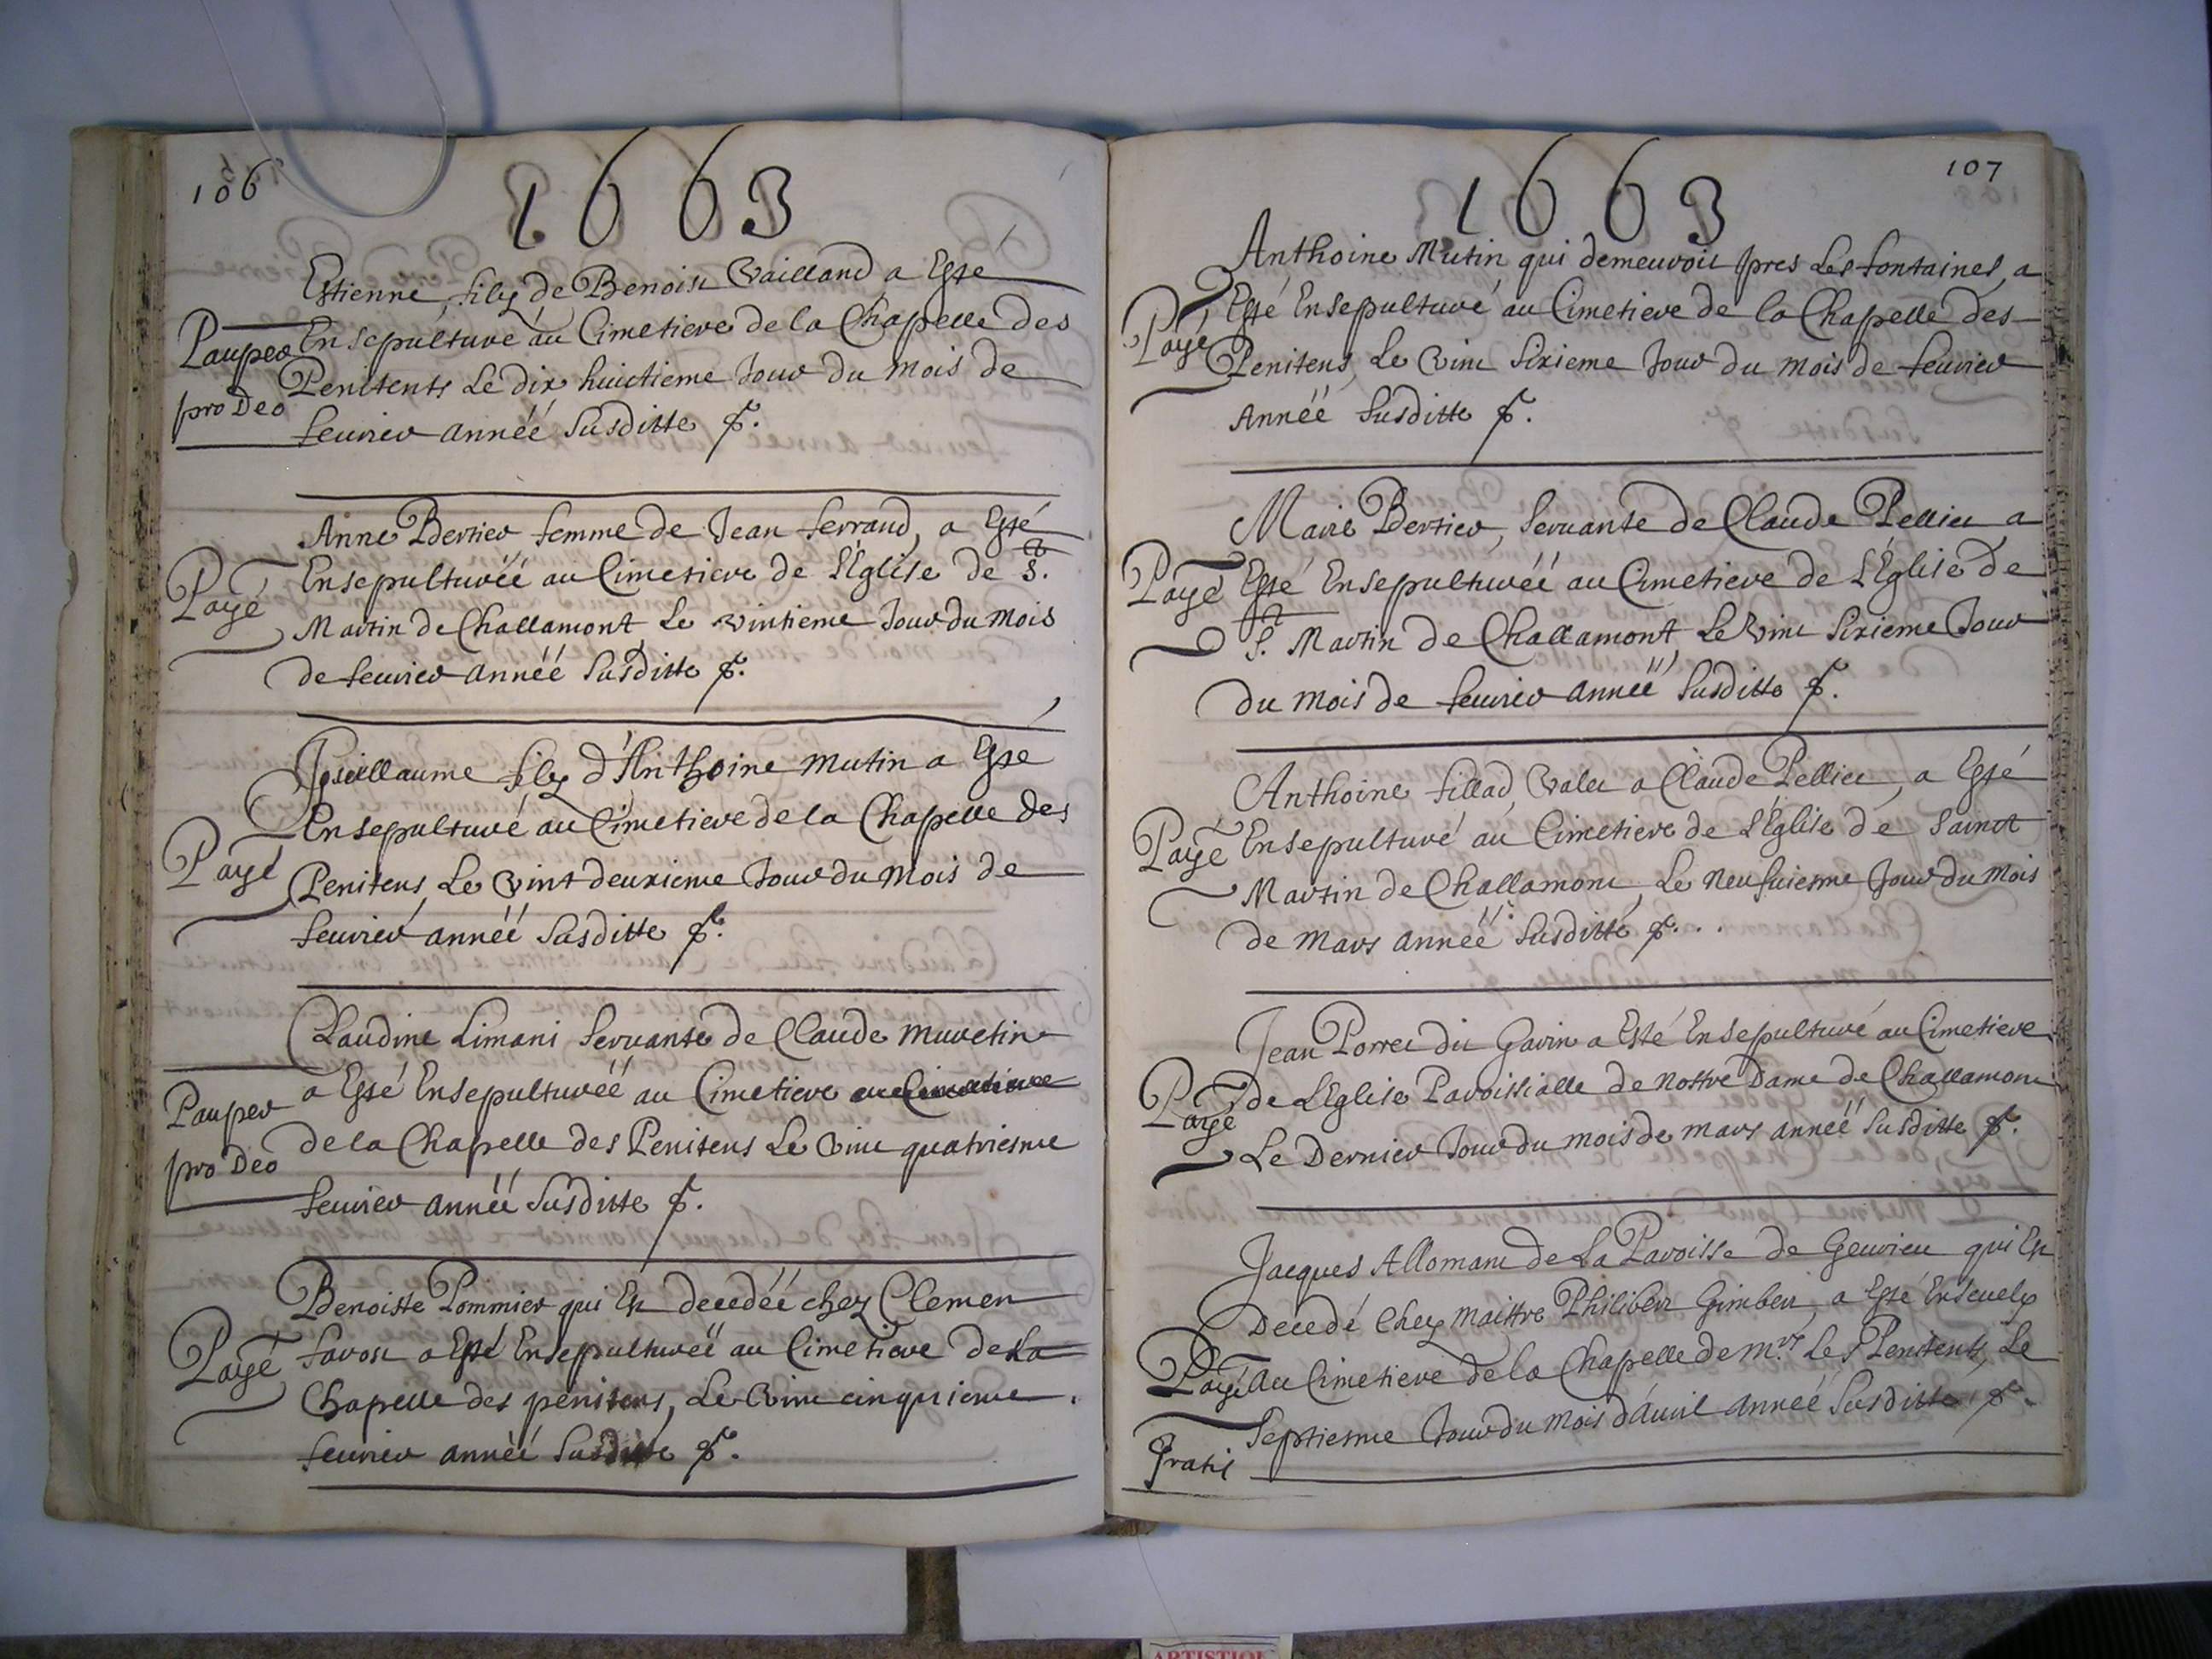 106
1663
Estienne fils de Benoist Vailland a Esse
Pauper Ensepulturé au Cimetiere de la Chapelle des
Penitents Le dix huictieme Jour du mois de
pro Deo
feuvrier année susditte
Anne Bertier femme de Jean ferrand, a Esté
Ensepulturéé au Cimetiere de L'Eglise de S.t
Payé
Martin de Challamont, Le vintieme Jour du mois
de feuvrier année susditte
Guillaume fils d'Anthoine Mutin a Esse
Ensepulturé au Cimetiere de la Chapelle des
Payé
Penitens, Le vint deuxieme Jour du mois de
feuvrier année susditte
Claudine Limani servante de Claude Muretin
a Essé Ensepulturéé au Cimetiere au Cimetiere
Pauper
de la Chapelle des Penitens Le vint quatriesme
pro Deo
feuvrier année susditte
Benoiste Pommier qui Est decedéé chez Clemen
Payé favost a Essé Ensepulturéé au Cimetiere de La
Chapelle des penitens, Le vint cinquieme.
feuvrier année susditte
107
1663
Anthoine Mutin qui demeuroit pres Les fontaines, a
Essé Ensepulturé au Cimetiere de la Chapelle des
Payé
Penitens, Le vint sixieme Jour du mois de feuvrier
Année susditte
Marie Bertier, servante de Claude Pelliet a
Payé Essé Ensepulturéé au Cimetiere de L'Église de
S.t Martin de Challamont, Le vint sixieme Jour
du mois de feuvrier année susditte
Anthoine fillad, valet a Claude Pelliet, a Essé
Payé Ensepulturé au Cimetiere de L'Église de sainct
Martin de Challamont, Le neufuiesme Jour du mois
de mars année susditte
Jean Porret dit Gavin a Esté Ensepulturé au Cimetiere
de L'Eglise Paroissialle de nostre Dame de Challamont
Payé
Le Dernier Jour du mois de mars année susditte
Jacques Allomant de La Paroisse de Geurieu qui Est
Decedé chez maittre Philibert Gimbert, a Essé Ensevely
Payé au Cimetiere de la Chapelle de m.rs Les Penitents, Le
septiesme Jour du mois d'auril année susditte
Gratis
ARTISTIQUE